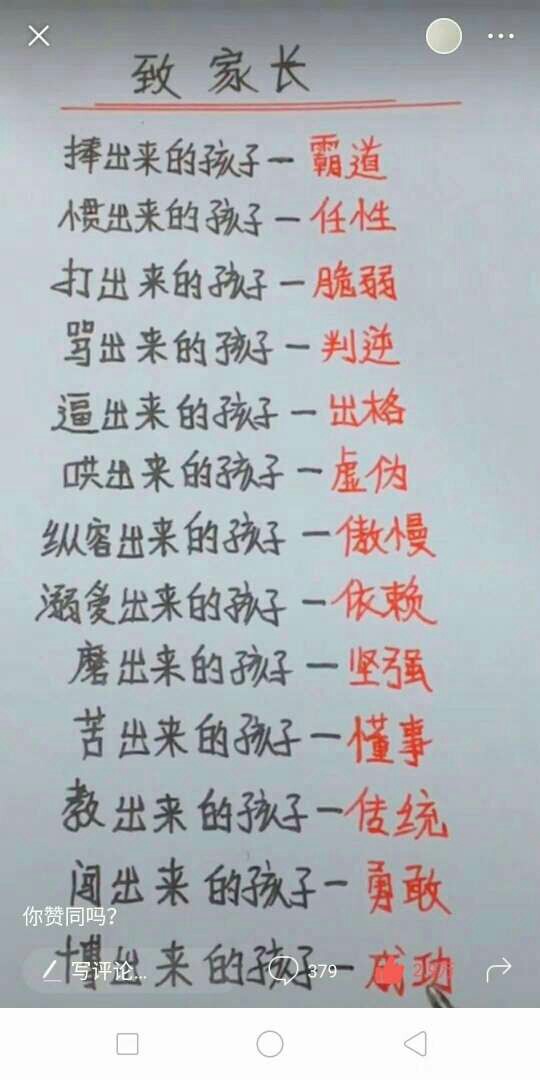 致家长
捧出来的孩子一霸道
惯出来的孩子一任性
打出来的孩子一脆弱
骂出来的孩子一判逆
逼出来的孩子一出格
哄出来的孩子一虚伪
纵容出来的孩子一傲慢
溺爱出来的孩子一依赖
磨出来的孩子一坚强
苦出来的孩子一懂事
教出来的孩子一传统
闯出来的孩子一勇敢
你赞同吗?
博出来的孩子一成功
写评论... 379